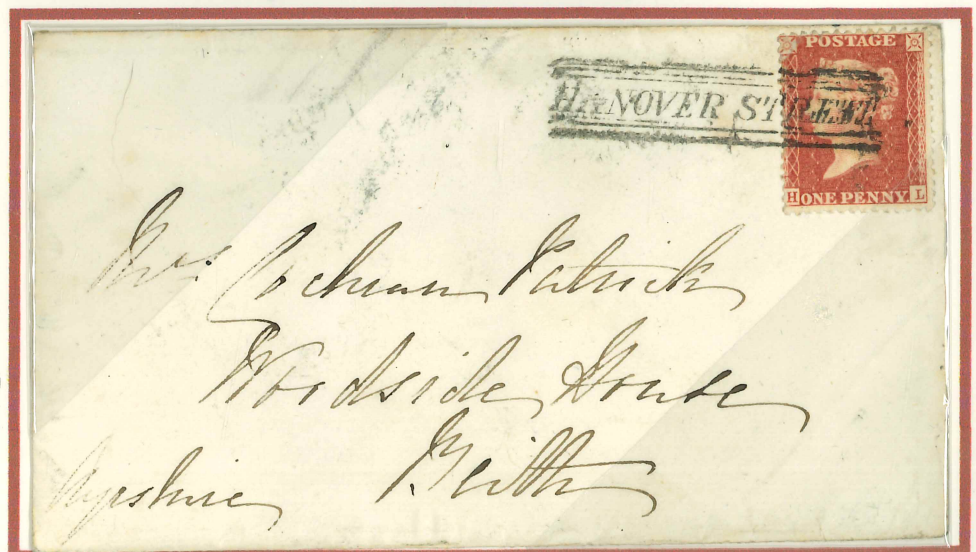 POSTAGE
HANOVER STREET
H ONE PENNY L
Mrs. Cochran Patrick
Woodside House
Beith
Ayrshire